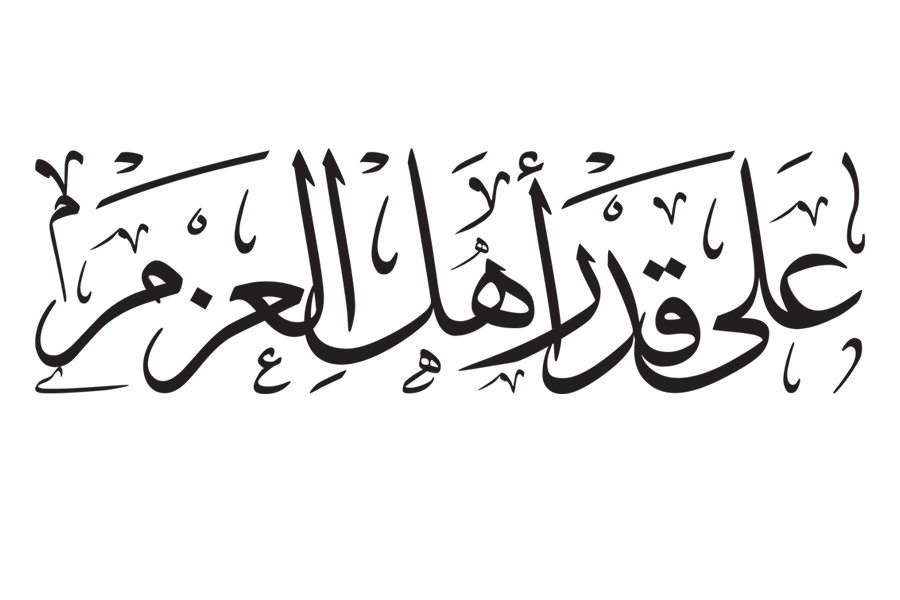 على قدر أهل العزم